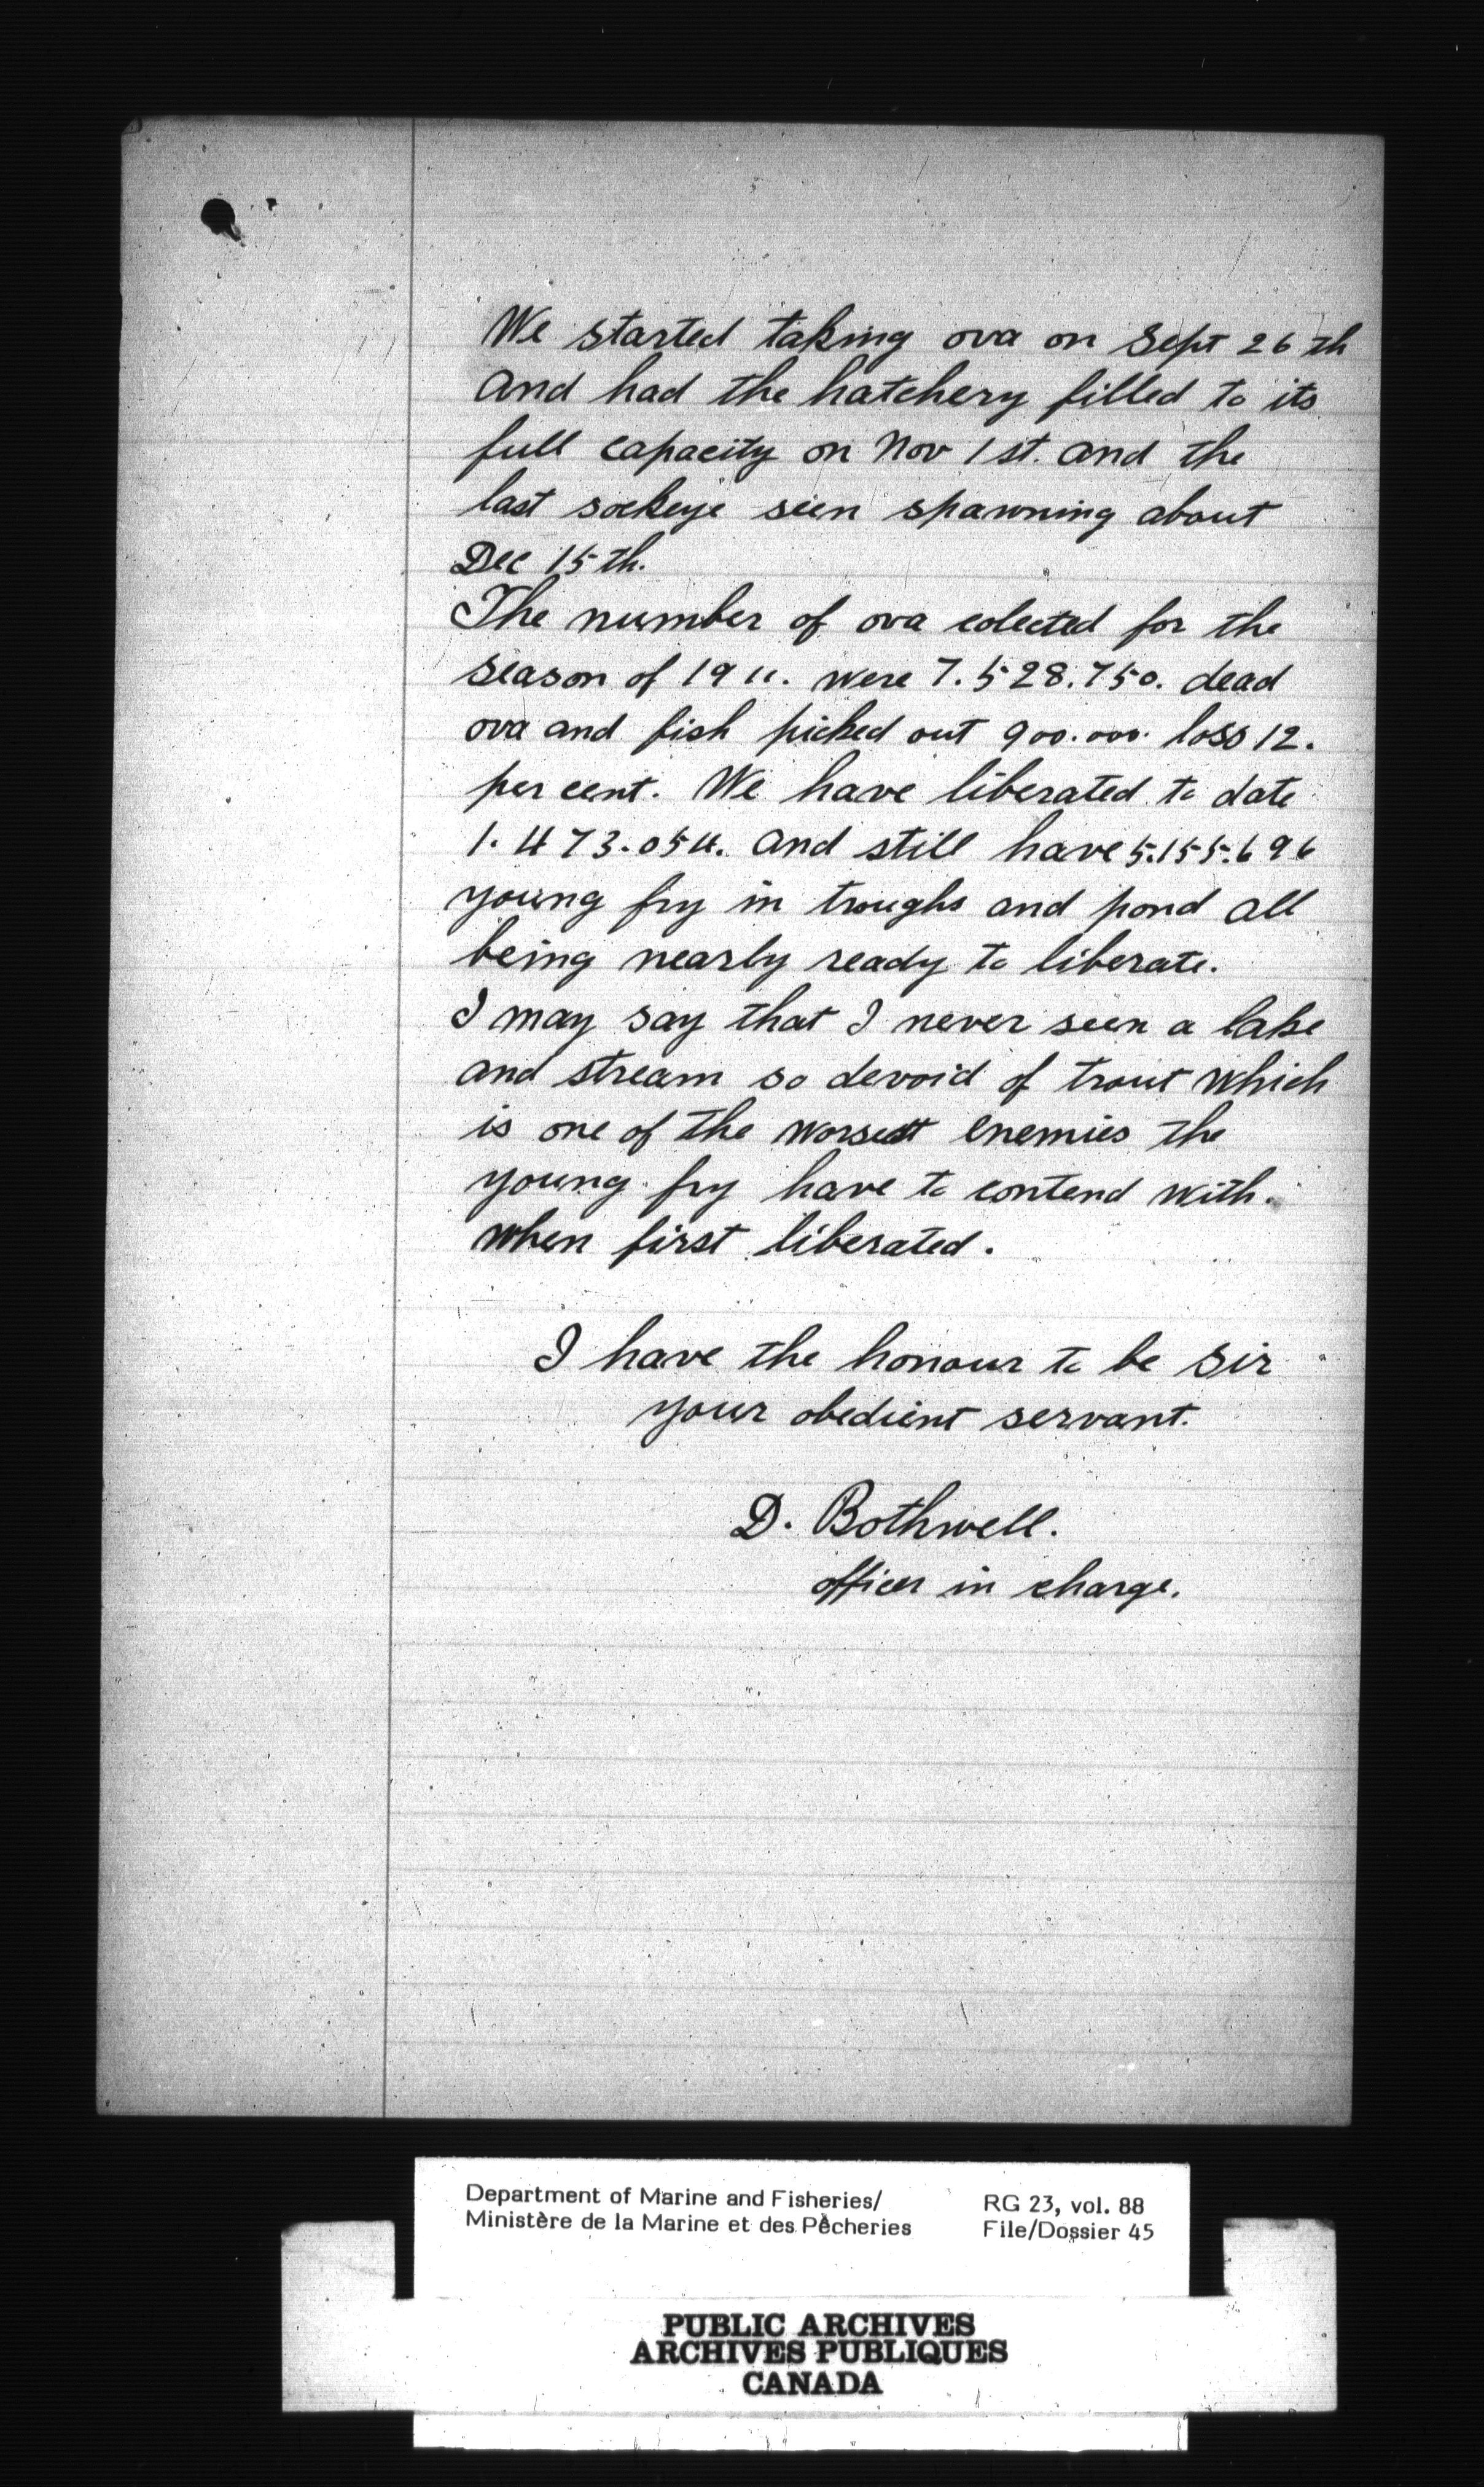 We started taking ova on Sept 26 th
and had the hatchery filled to its
full capacity on Nov 1st. and the
last sockeye seen spawning about
Dec 15th.
The number of ova colected for the
season of 1911. were 7.528.750. dead
ova and fish picked out 900.000. loss 12.
per cent. We have liberated to date
1.473.054. and still have 5.155.696
young fry in troughs and pond all
being nearly ready to liberate.
I may say that I never seen a lake
and stream so devoid of trout which
is one of the worsest enemies the
young fry have to contend with.
when first liberated.
I have the honour to be Sir
your obedient servant.
D. Bothwell.
officer in charge.
Department of Marine and Fisheries/ RG 23, vol. 88
Ministère de la Marine et des Pêcheries File/Dossier 45
PUBLIC ARCHIVES
ARCHIVES PUBLIQUES
CANADA